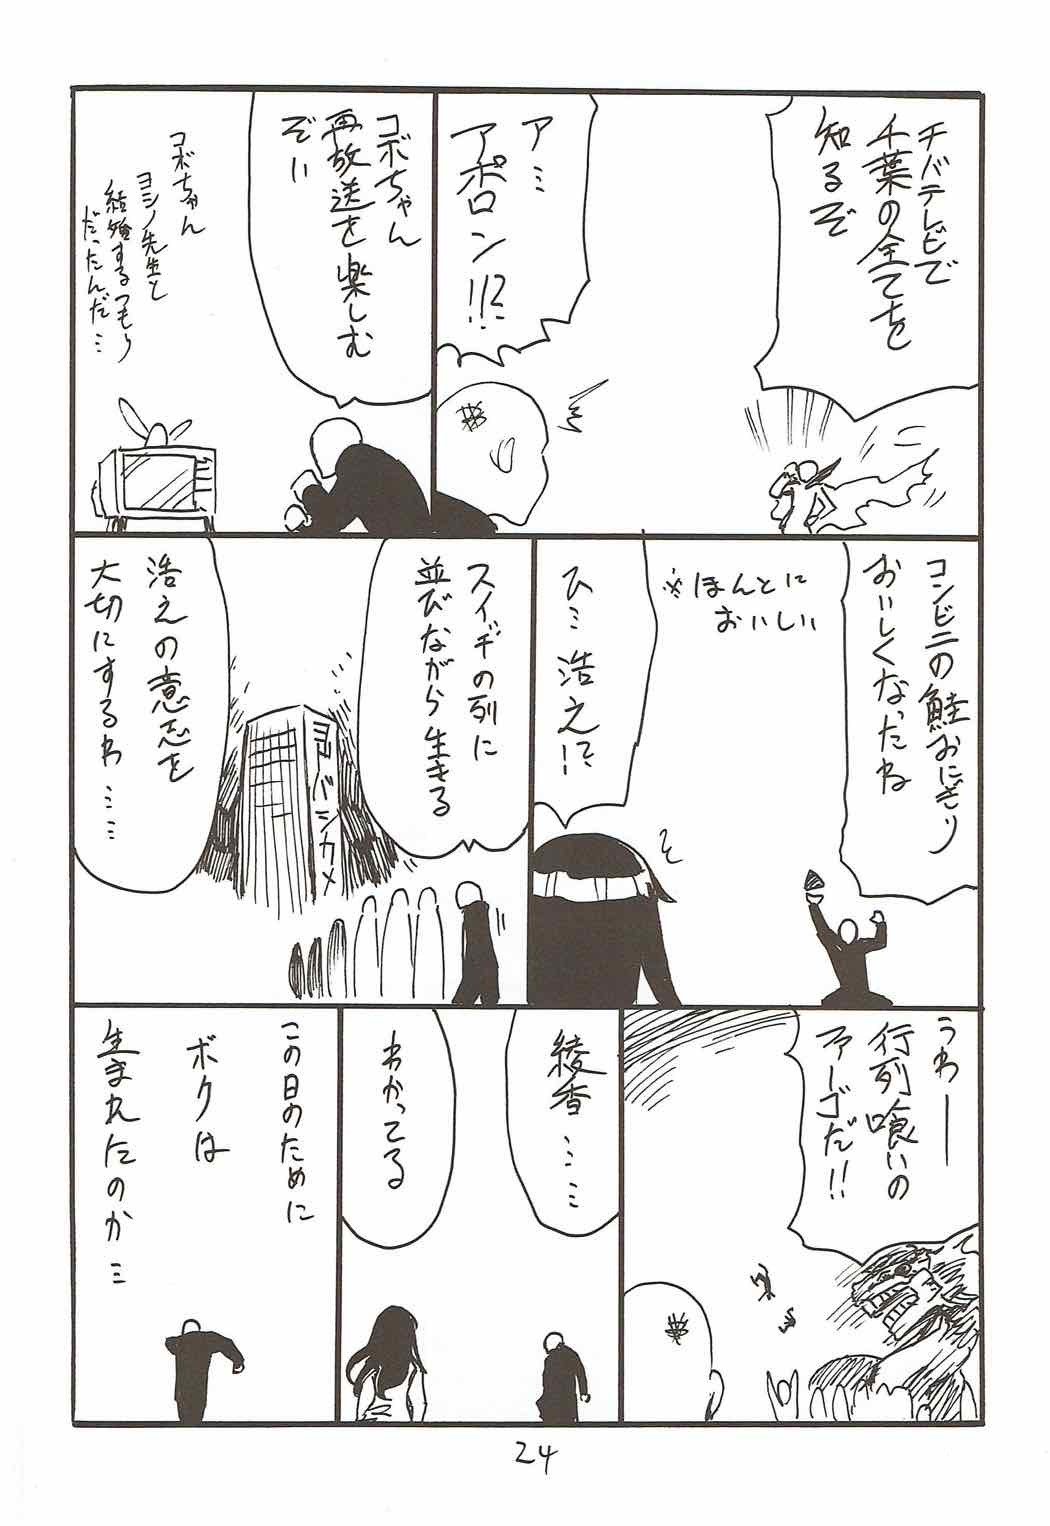 チバテレビで
千葉の全てを
知るぞ
ア…
アポロン!!?
コボちゃん
再放送を楽しむ
ぞい
コボちゃん
ヨシノ先生と
結婚するつもり
だったんだ…
コンビニの鮭おにぎり
おいしくなったね
※ほんとに
おいしい
ひ…浩之!?
スイーヂの列に
並びながら生きる
ヨドバシカメ
浩之の意志を
大切にするわ……
うわー
行列喰いの
ファーゴだ!!
綾香……
わかってる
この日のために
ボクは
生まれたのか…
24